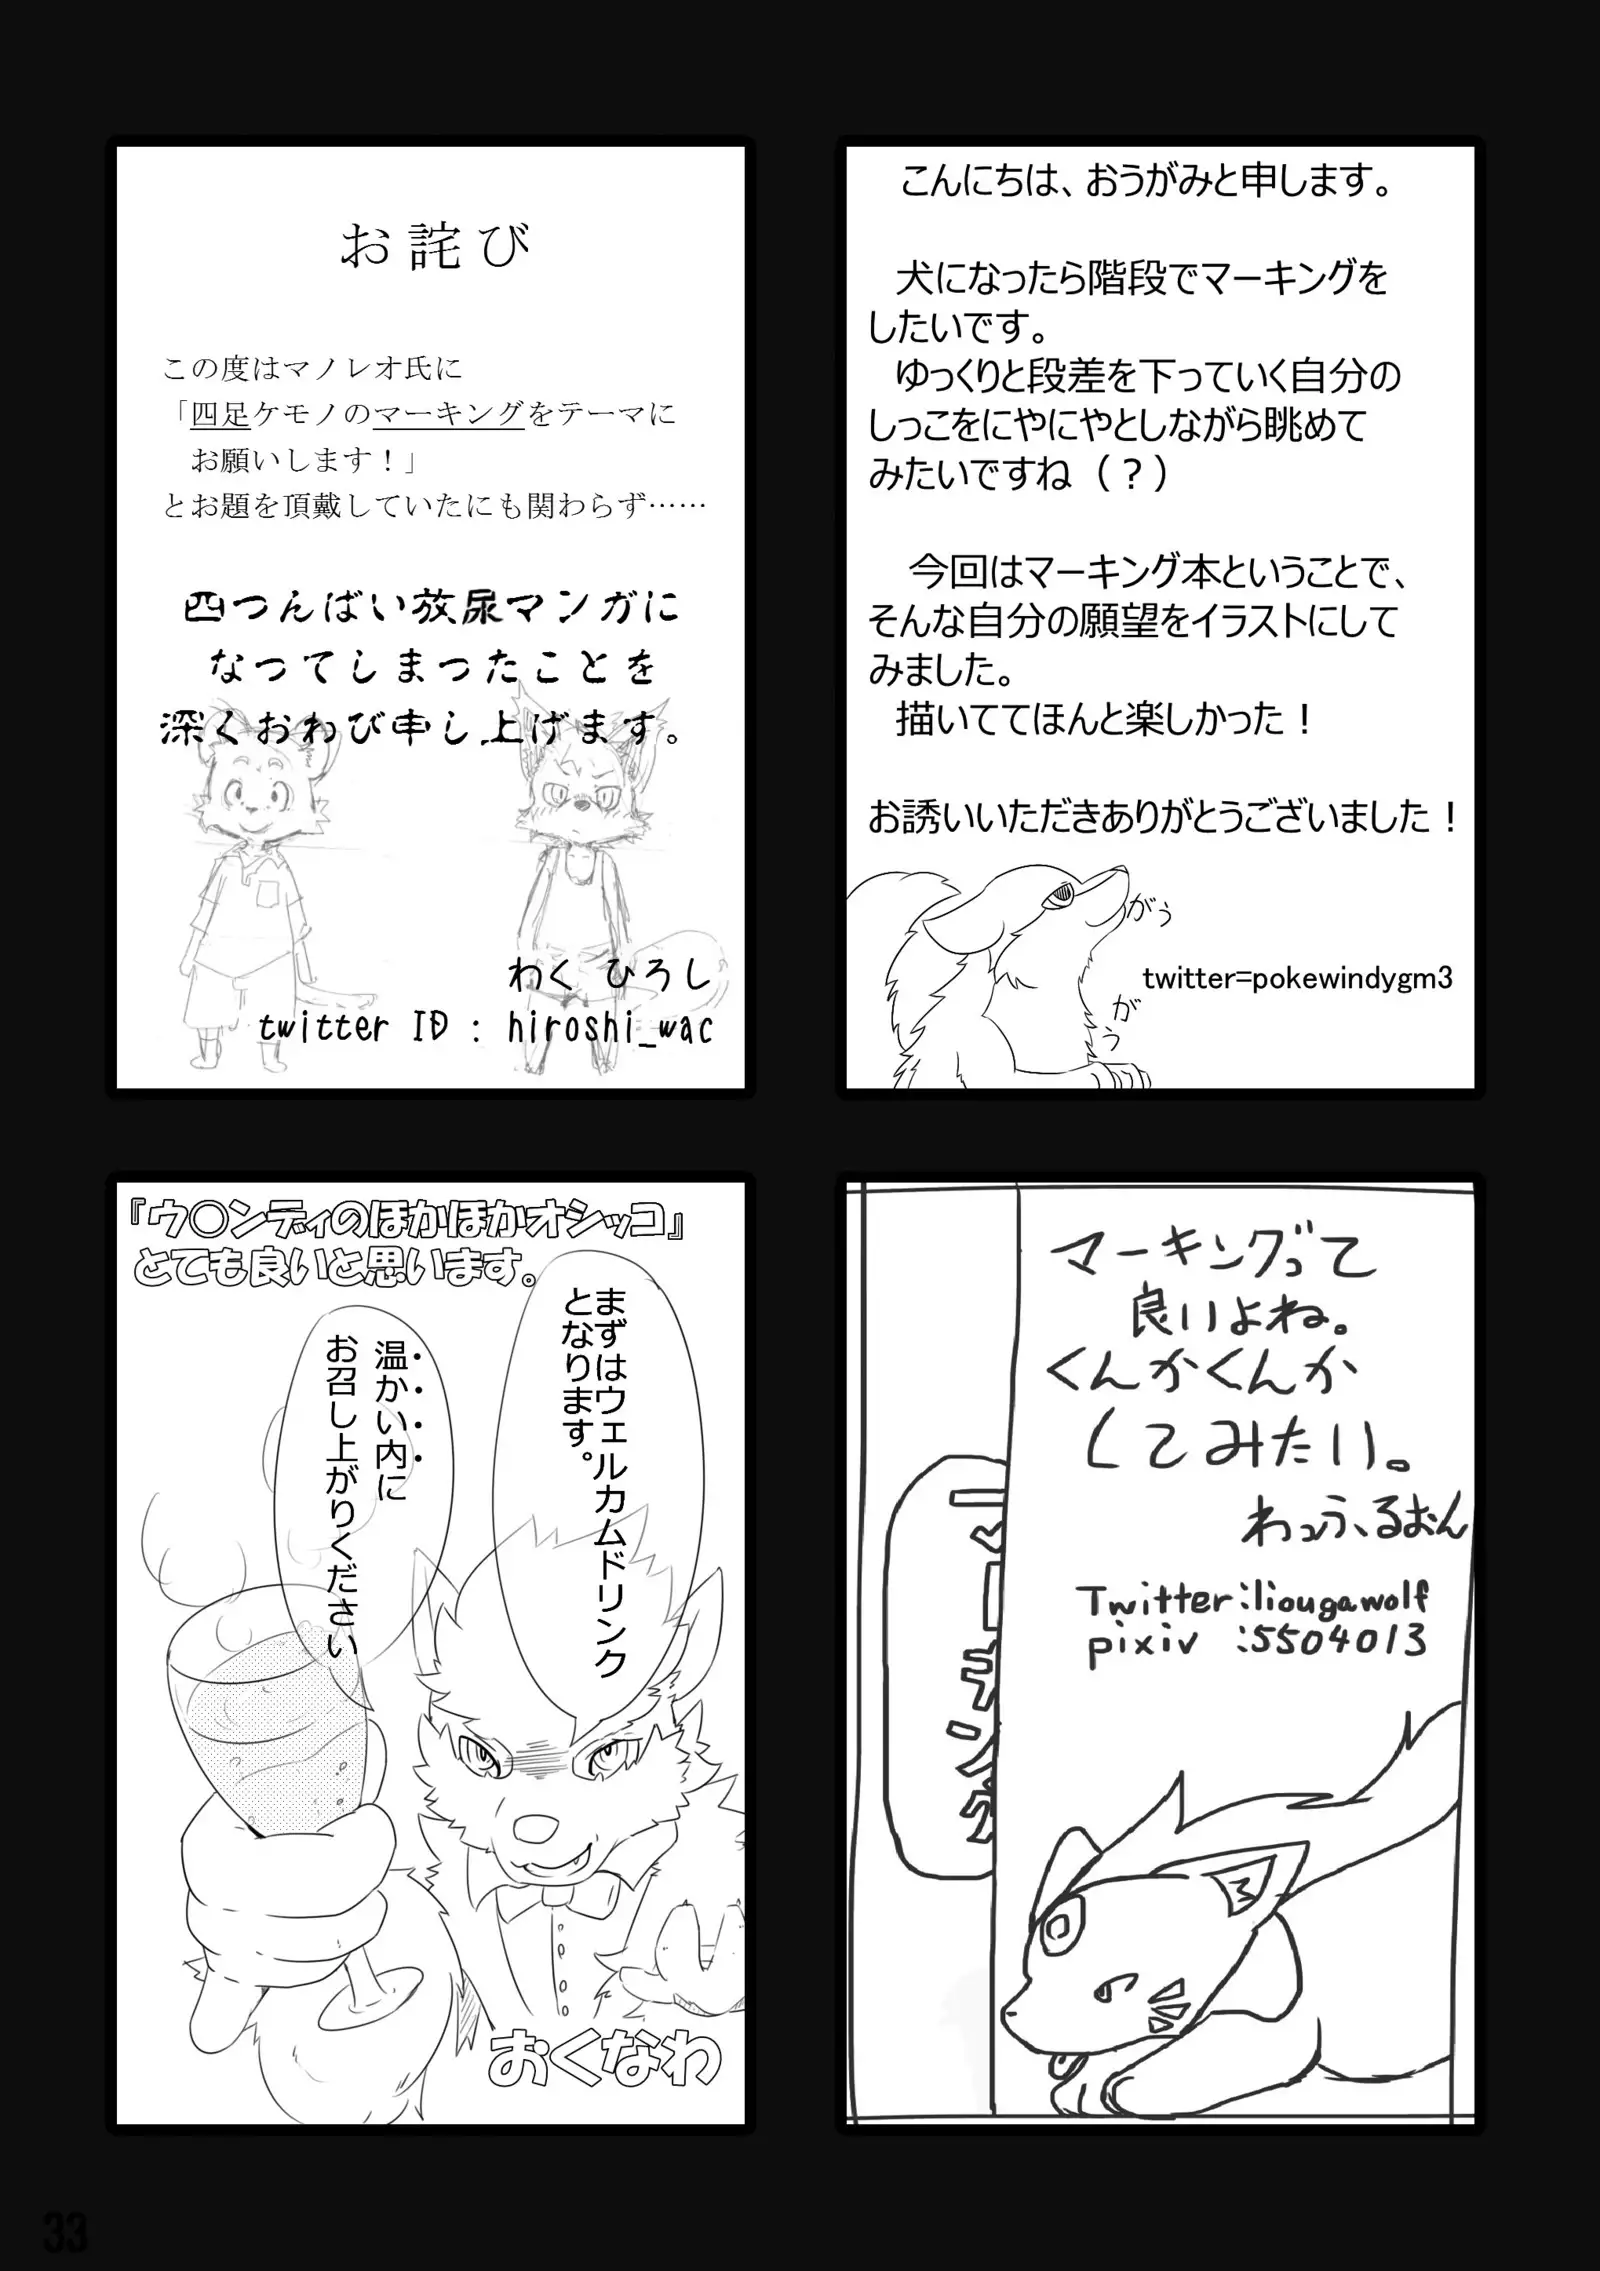 こんにちは、おうがみと申します。
犬になったら階段でマーキングを
したいです。
ゆっくりと段差を下っていく自分の
しっこをにやにやとしながら眺めて
みたいですね（？）
今回はマーキング本ということで、
そんな自分の願望をイラストにして
みました。
描いててほんと楽しかった！
お誘いいただきありがとうございました！
がぅ
がぅ
twitter=pokewindygm3
お詫び
この度はマノレオ氏に
「四足ケモノのマーキングをテーマに
お願いします！」
とお題を頂戴していたにも関わらず……
四つんばい放尿マンガに
なってしまったことを
深くおわび申し上げます。
わく ひろし
twitter ID : hiroshi_wac
マーキングって
良いよね。
くんかくんか
してみたい。
わっふ、るおん
Twitter:liougawolf
pixiv :5504013
マーキング
『ウ○ンディのほかほかオシッコ』
とても良いと思います。
まずはウェルカムドリンク
となります。
温かい内に
お召し上がりください
おくなわ
33